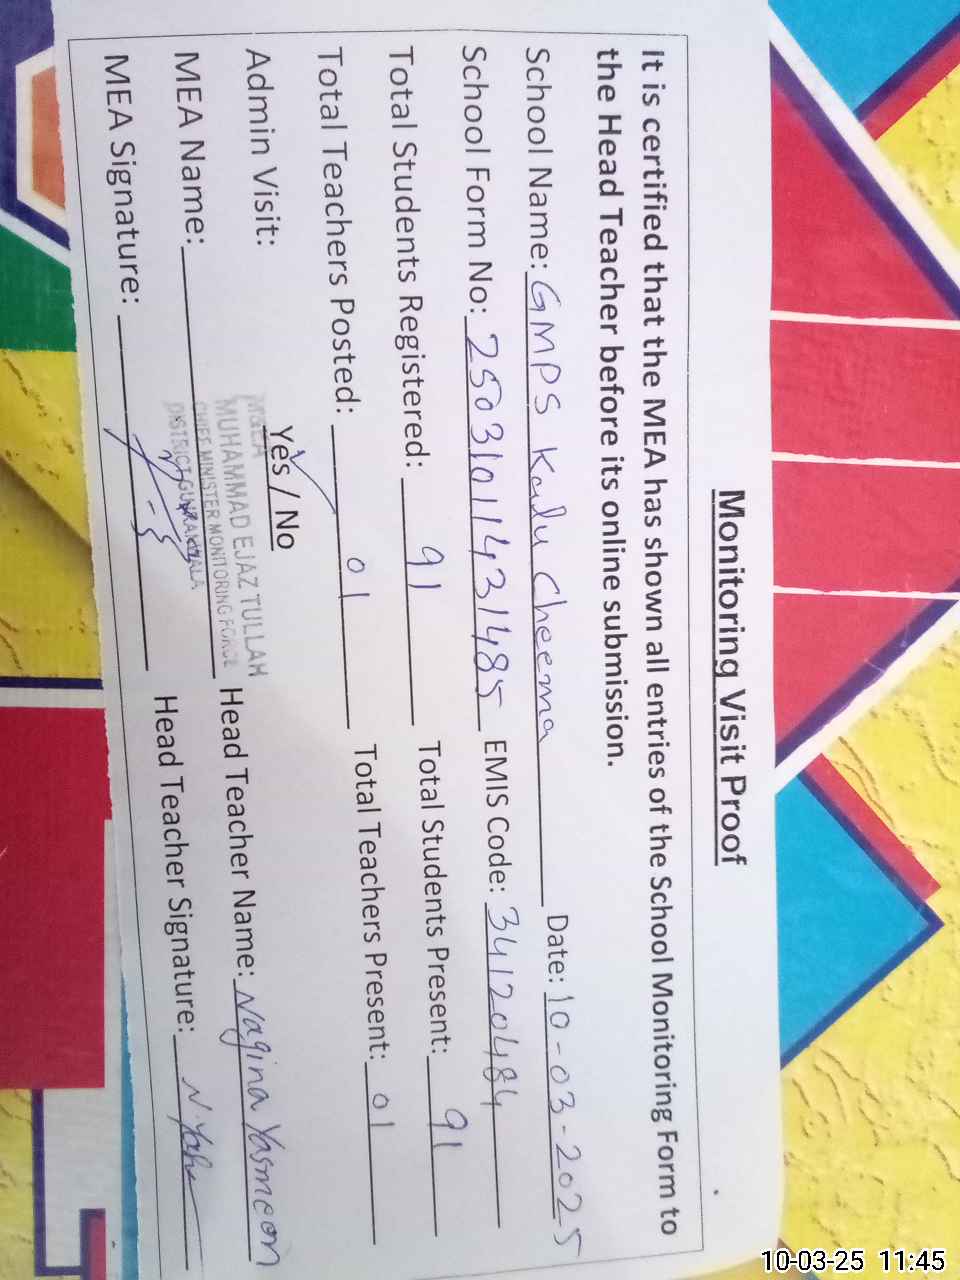 Monitoring Visit Proof
It is certified that the MEA has shown all entries of the School Monitoring Form to
the Head Teacher before its online submission.
School Name: GMPS Kalu Cheema Date: 10-03-2025
School Form No: 25031011431485 EMIS Code: 34120484
Total Students Registered: 91 Total Students Present: 91
Total Teachers Posted: 01 Total Teachers Present: 01
Admin Visit: Yes / No
MUHAMMAD EJAZ TULLAH
CHIEF MINISTER MONITORING FORCE
DISTRICT GUJRANWALA
MEA Name: Head Teacher Name: Nagina Yasmeen
MEA Signature: Head Teacher Signature:
10-03-25 11:45